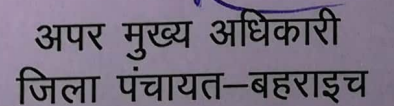 अपर मुख्य अधिकारी
जिला पंचायत–बहराइच